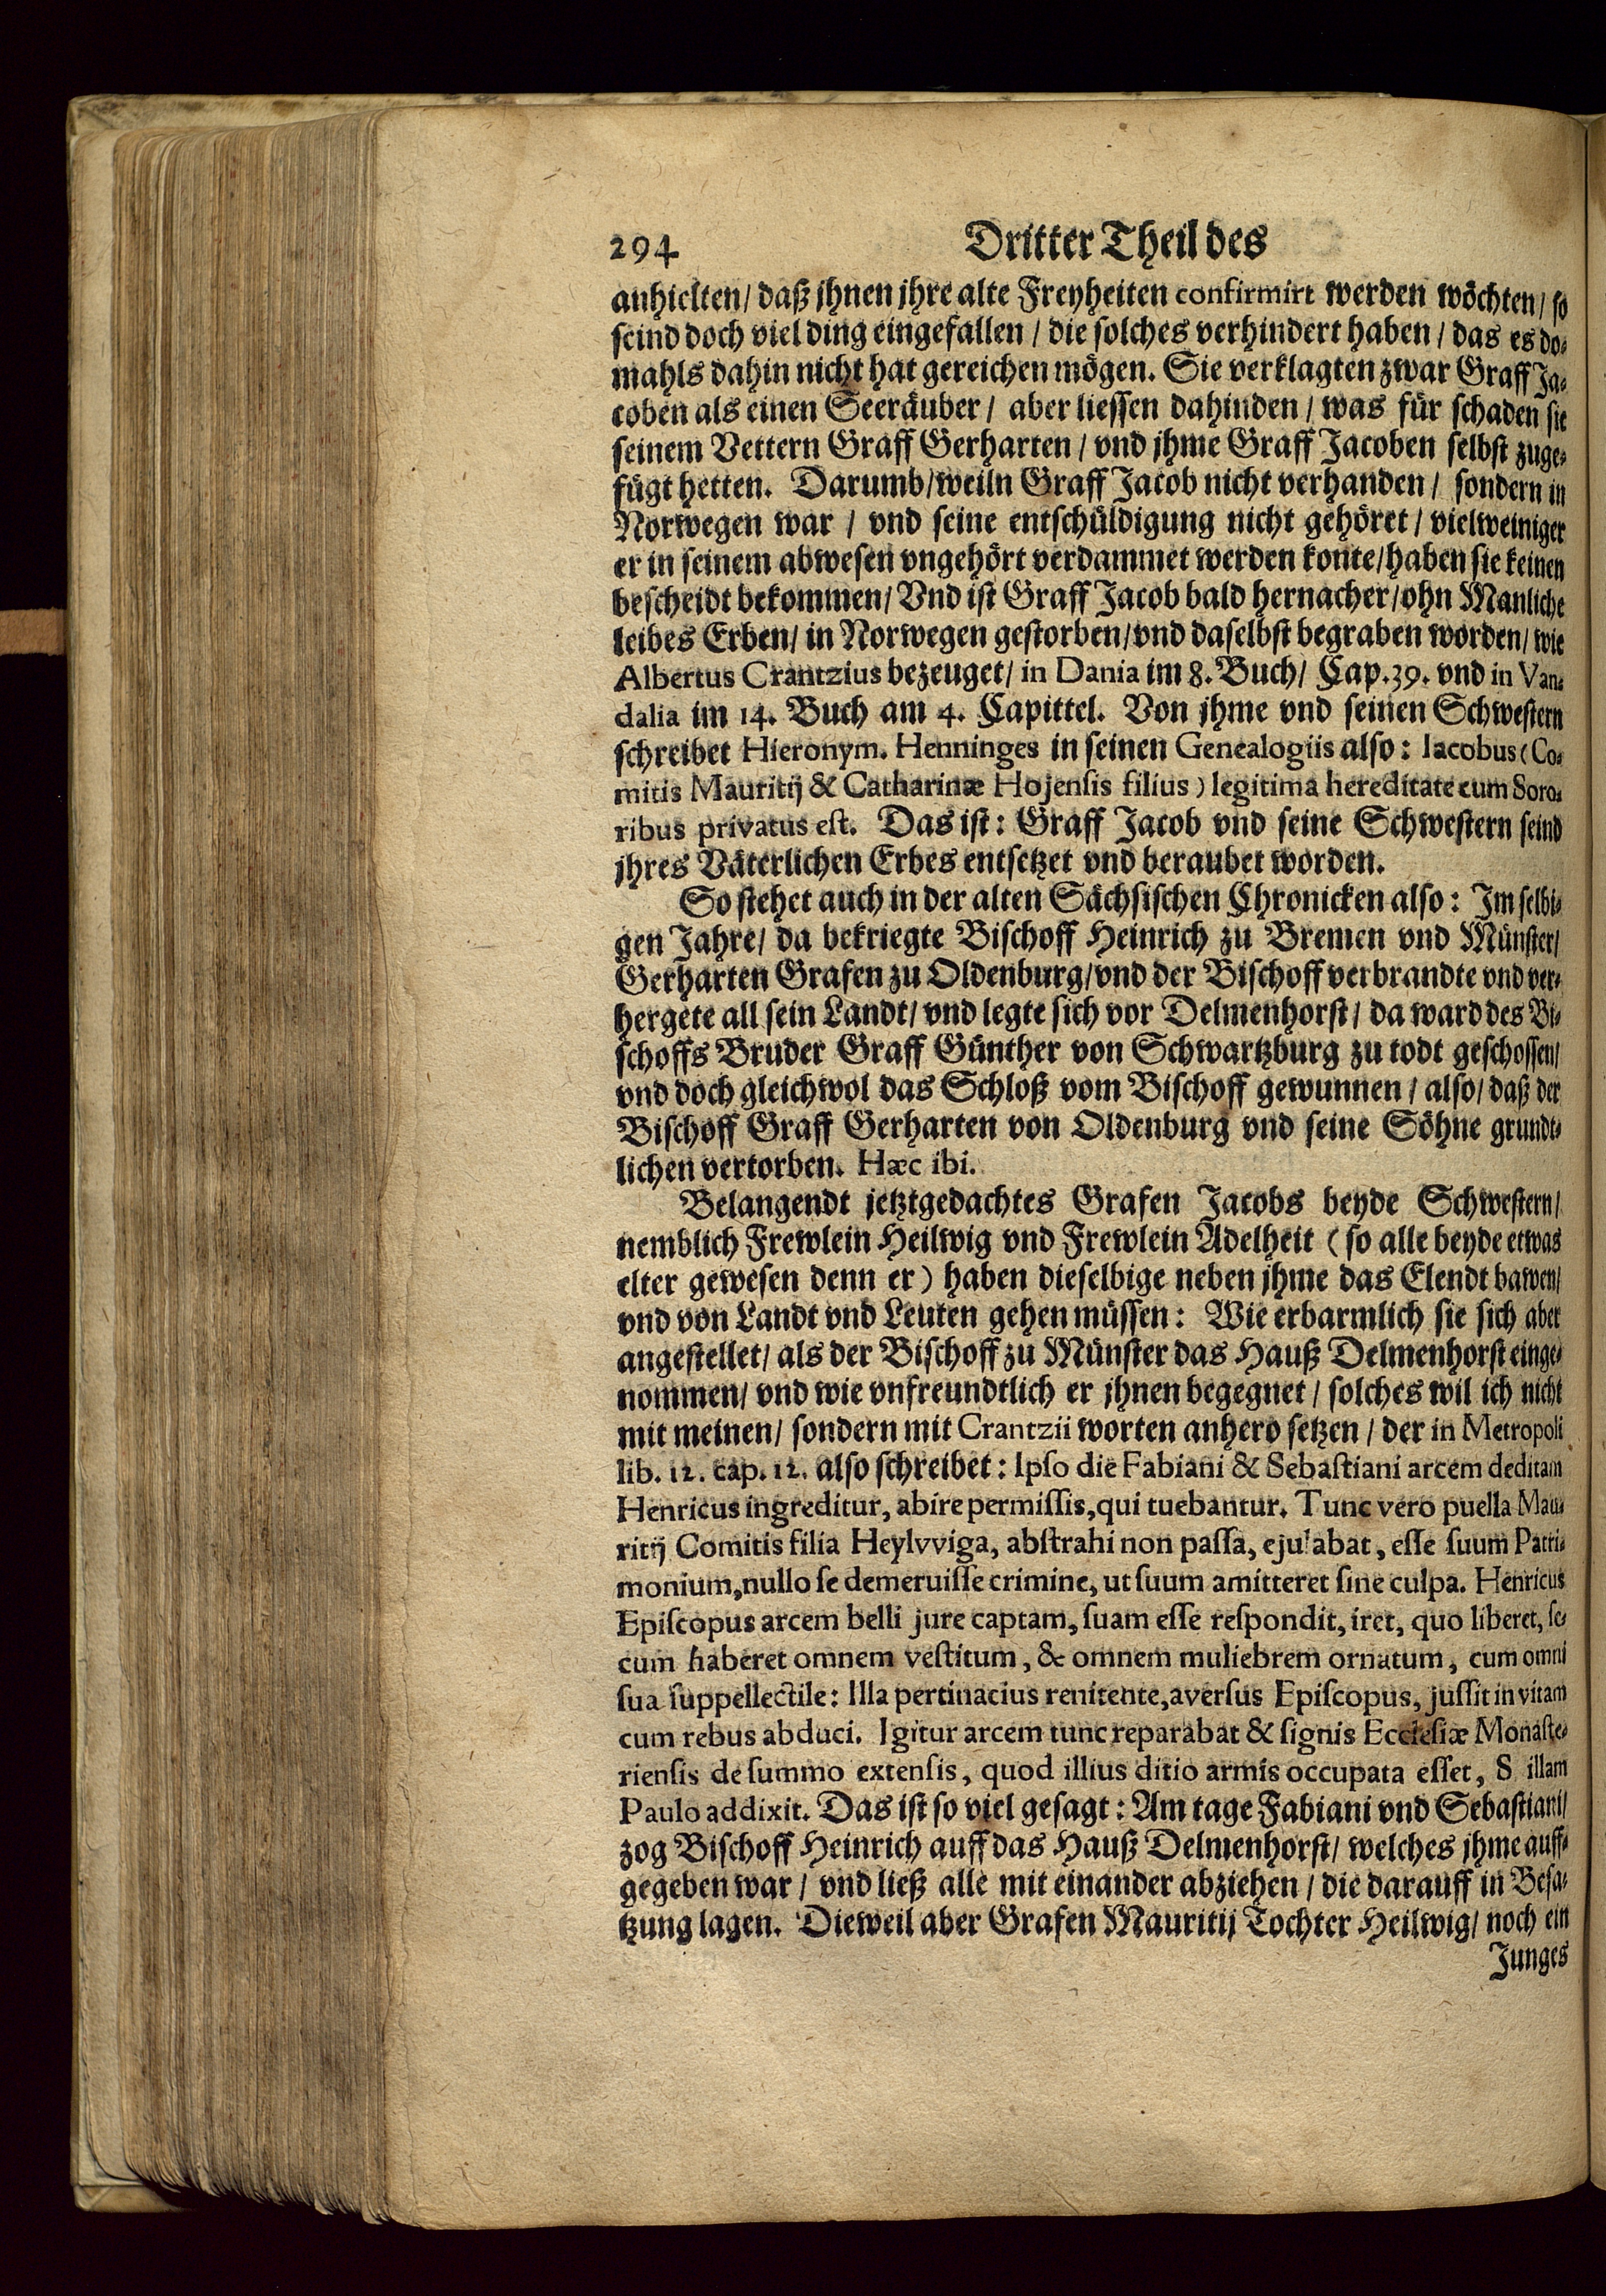 294 Dritter Theil des
anhielten/ daß jhnen jhre alte Freyheiten confirmirt werden wöchten/ so
seind doch viel ding eingefallen / die solches verhindert haben / das es do-
mahls dahin nicht hat gereichen mögen. Sie verklagten zwar Graff Ja-
coben als einen Seeräuber / aber liessen dahinden / was für schaden sie
seinem Vettern Graff Gerharten / vnd jhme Graff Jacoben selbst zuge-
fügt hetten. Darumb/weiln Graff Jacob nicht verhanden / sondern in
Norwegen war / vnd seine entschüldigung nicht gehöret / vielweiniger
er in seinem abwesen vngehört verdammet werden konte/haben sie keinen
bescheidt bekommen/ Vnd ist Graff Jacob bald hernacher/ohn Manliche
leibes Erben/ in Norwegen gestorben/vnd daselbst begraben worden/ wie
Albertus Crantzius bezeuget/ in Dania im 8. Buch/ Cap.39. vnd in Van-
dalia im 14. Buch am 4. Capittel. Von jhme vnd seinen Schwestern
schreibet Hieronym. Henninges in seinen Genealogiis also: Iacobus (Co-
mitis Mauritij & Catharinæ Hojensis filius) legitima hereditate cum Soro-
ribus privatus est. Das ist: Graff Jacob vnd seine Schwestern seind
jhres Väterlichen Erbes entsetzet vnd beraubet worden.
So stehet auch in der alten Sächsischen Chronicken also: Im selbi-
gen Jahre/ da bekriegte Bischoff Heinrich zu Bremen vnd Münster/
Gerharten Grafen zu Oldenburg/vnd der Bischoff verbrandte vnd ver-
hergete all sein Landt/ vnd legte sich vor Delmenhorst/ da ward des Bi-
schoffs Bruder Graff Günther von Schwartzburg zu todt geschossen/
vnd doch gleichwol das Schloß vom Bischoff gewunnen / also/ daß der
Bischoff Graff Gerharten von Oldenburg vnd seine Söhne grundt-
lichen vertorben. Hæc ibi.
Belangendt jetztgedachtes Grafen Jacobs beyde Schwestern/
nemblich Frewlein Heilwig vnd Frewlein Adelheit (so alle beyde etwas
elter gewesen denn er) haben dieselbige neben jhme das Elendt bawen/
vnd von Landt vnd Leuten gehen müssen: Wie erbarmlich sie sich aber
angestellet/ als der Bischoff zu Münster das Hauß Delmenhorst einge-
nommen/ vnd wie vnfreundtlich er jhnen begegnet / solches wil ich nicht
mit meinen/ sondern mit Crantzii worten anhero setzen / der in Metropoli
lib. 12. cap. 12. also schreibet: Ipso die Fabiani & Sebastiani arcem deditam
Henricus ingreditur, abire permissis, qui tuebantur. Tunc vero puella Mau-
ritij Comitis filia Heylvviga, abstrahi non passa, ejulabat, esse suum Patri-
monium, nullo se demeruisse crimine, ut suum amitteret sine culpa. Henricus
Episcopus arcem belli jure captam, suam esse respondit, iret, quo liberet, se-
cum haberet omnem vestitum, & omnem muliebrem ornatum, cum omni
sua suppellectile: Illa pertinacius renitente, aversus Episcopus, jussit in vitam
cum rebus abduci. Igitur arcem tunc reparabat & signis Ecclesiæ Monaste-
riensis de summo extensis, quod illius ditio armis occupata esset, S illam
Paulo addixit. Das ist so viel gesagt: Am tage Fabiani vnd Sebastiani/
zog Bischoff Heinrich auff das Hauß Delmenhorst/ welches jhme auff-
gegeben war / vnd ließ alle mit einander abziehen / die darauff in Besa-
tzung lagen. Dieweil aber Grafen Mauritij Tochter Heilwig/ noch ein
Junges